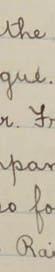 the
gue.
r. Fr
npan
o fo
Rai